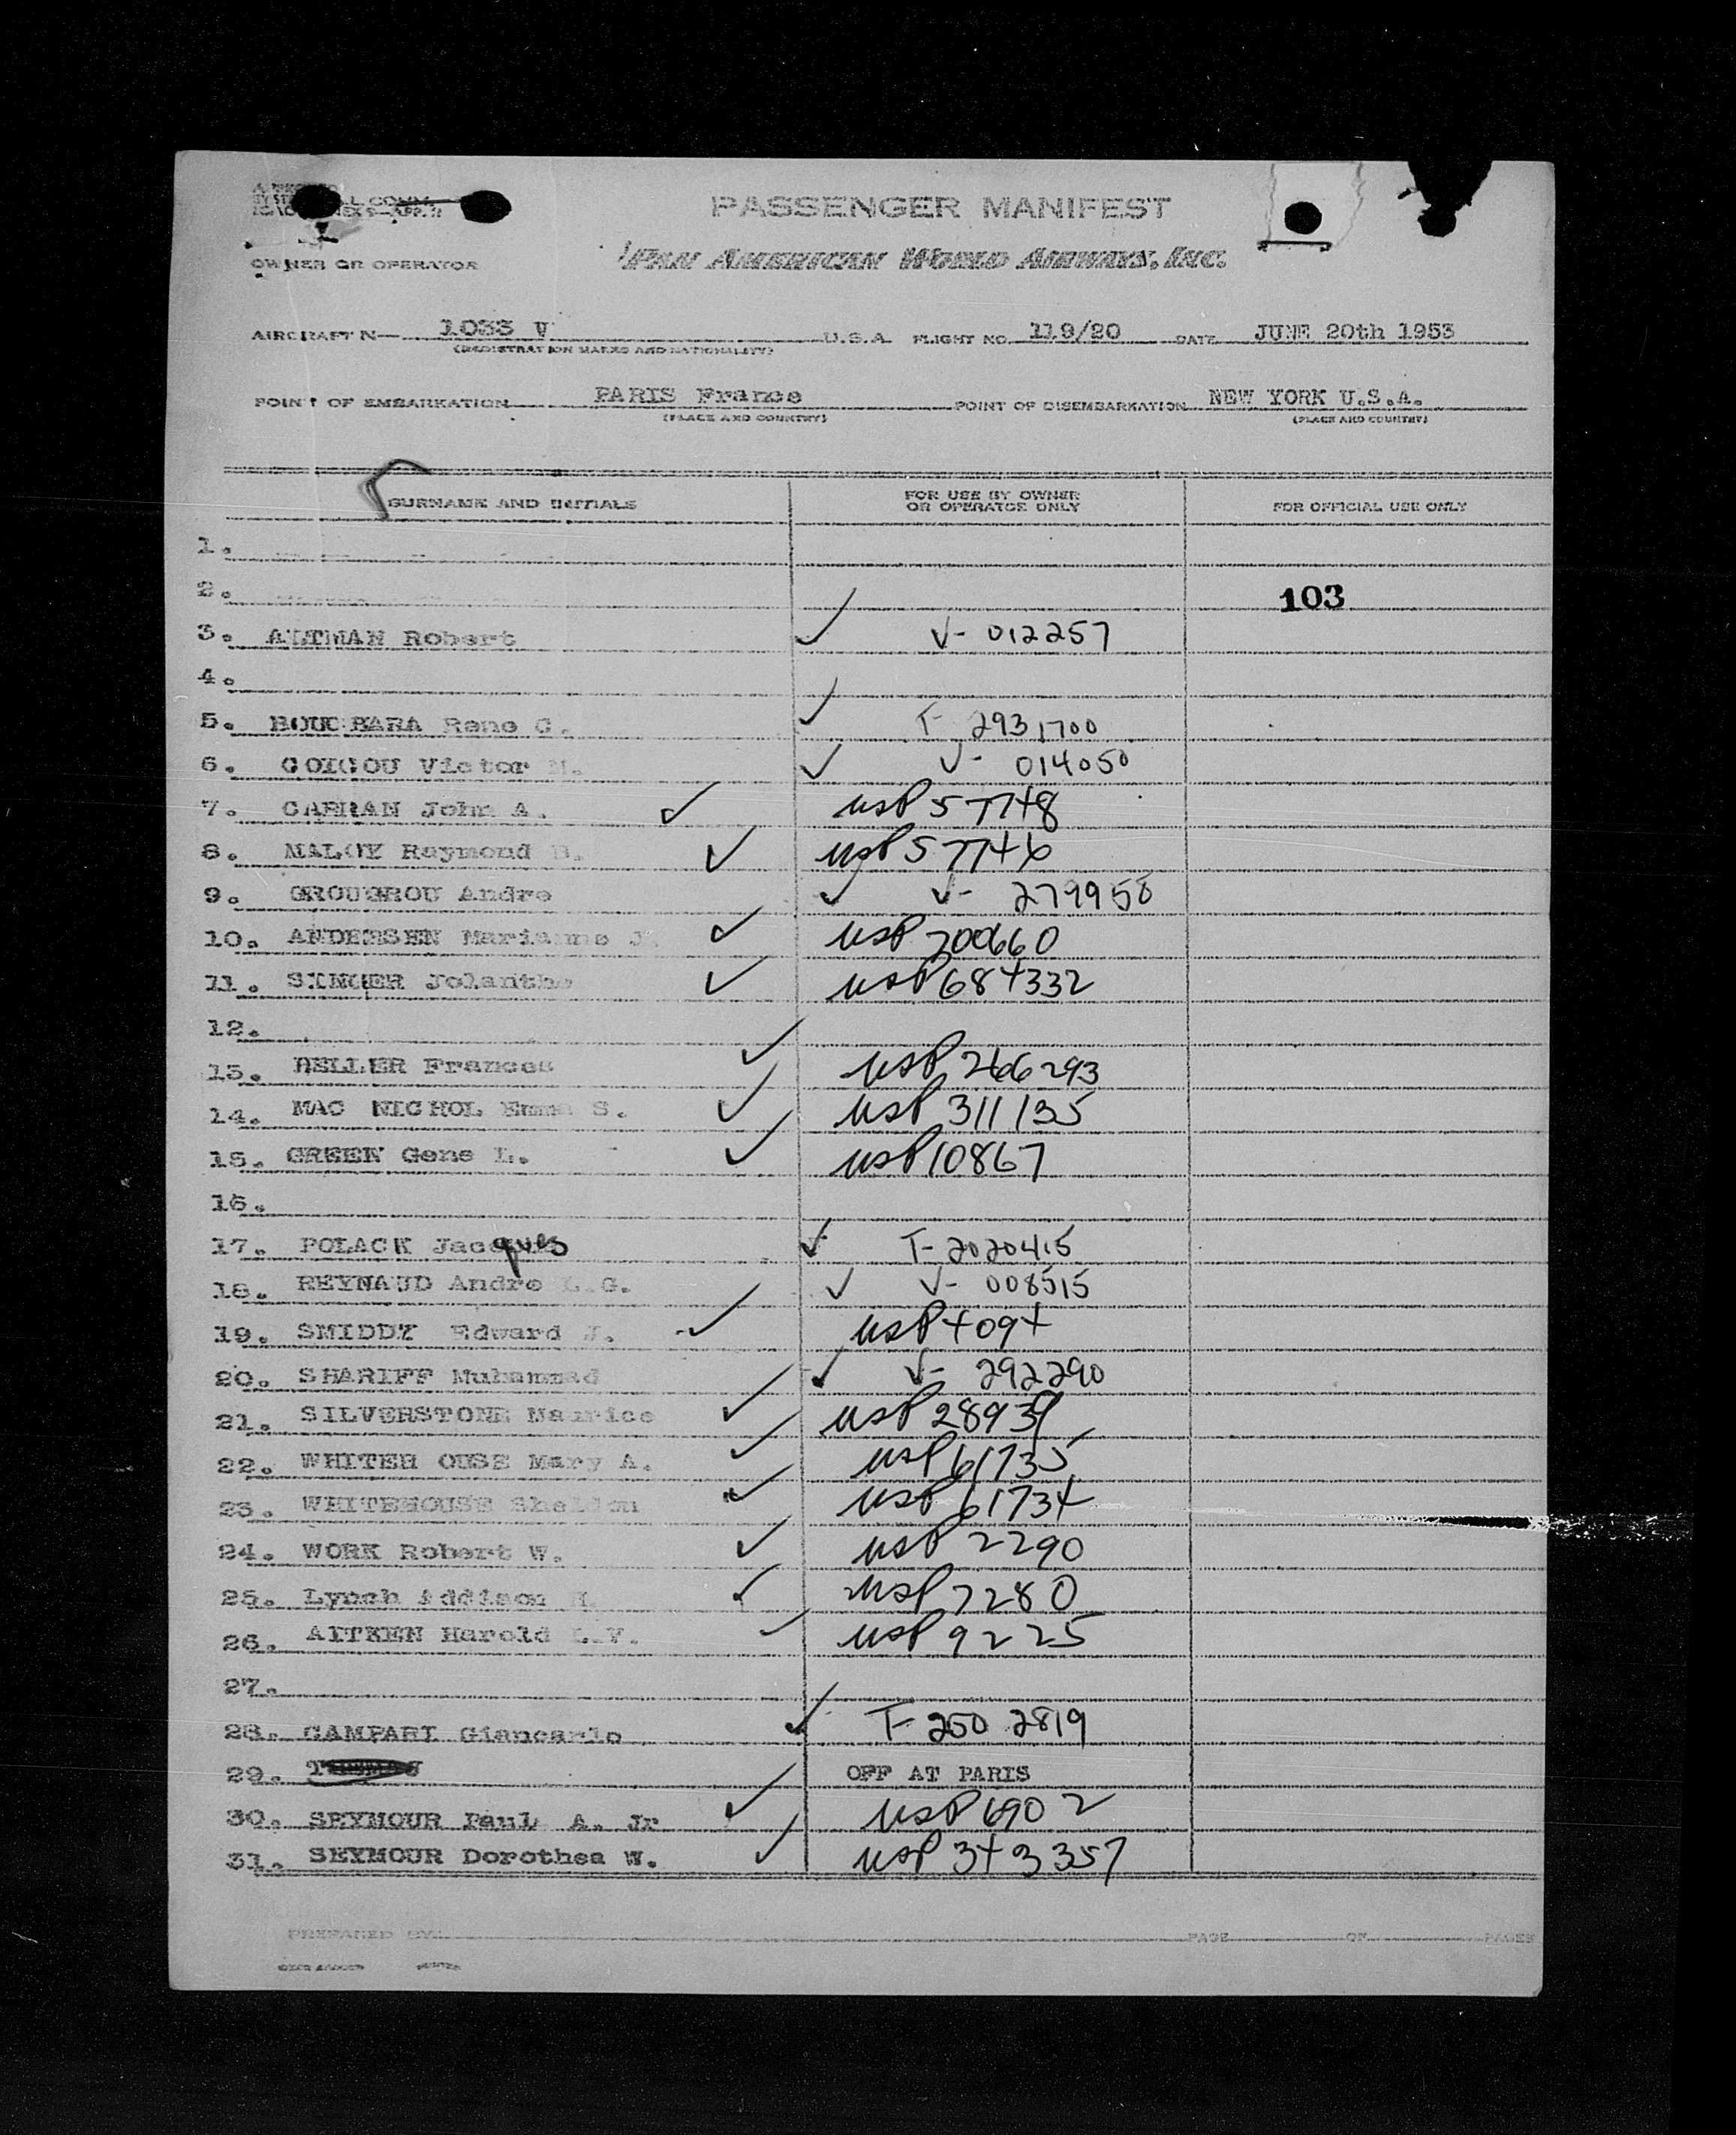 PASSENGER MANIFEST
PAN AMERICAN WORLD AIRWAYS, INC.
OWNER OR OPERATOR
AIRCRAFT N— 1033 V U.S.A. FLIGHT NO. 119/20 DATE JUNE 20th 1953
(REGISTRATION MARKS AND NATIONALITY)
POINT OF EMBARKATION PARIS France POINT OF DISEMBARKATION NEW YORK U.S.A.
(PLACE AND COUNTRY) (PLACE AND COUNTRY)
SURNAME AND INITIALS FOR USE BY OWNER OR OPERATOR ONLY FOR OFFICIAL USE ONLY
1.
2. 103
3. ALTMAN Robert ✓ V- 012257
4.
5. BOUCBARA Rene C. ✓ T- 2931700
6. GOIGOU Victor ✓ V- 014050
7. CARHAN John A. ✓ USP 57748
8. MALOY Raymond ✓ USP 57746
9. GROUGROU Andre ✓ V- 279958
10. ANDERSEN Marianne J. ✓ USP 200660
11. SINGER Jolanthe ✓ USP 684332
12.
13. HELLER Frances ✓ USP 266293
14. MAC NICHOL Emma S. ✓ USP 311135
15. GREEN Gene L. ✓ USP 10867
16.
17. POLACK Jacques ✓ T- 2020415
18. REYNAUD Andre L.G. ✓ V- 008515
19. SMIDDY Edward J. ✓ USP 4094
20. SHARIFF Muhammad ✓ V- 292290
21. SILVERSTONE Maurice ✓ USP 28939
22. WHITEH OUSE Mary A. ✓ USP 61735
23. WHITEHOUSE Sheldon ✓ USP 61734
24. WORK Robert W. ✓ USP 2290
25. Lynch Addison ✓ USP 7280
26. AITKEN Harold L.V. ✓ USP 9225
27.
28. CAMPARI Giancarlo ✓ T- 250 2819
29. OFF AT PARIS
30. SEYMOUR Paul A. Jr ✓ USP 6902
31. SEYMOUR Dorothea W. ✓ USP 343357
PREPARED BY PAGE OF PAGES